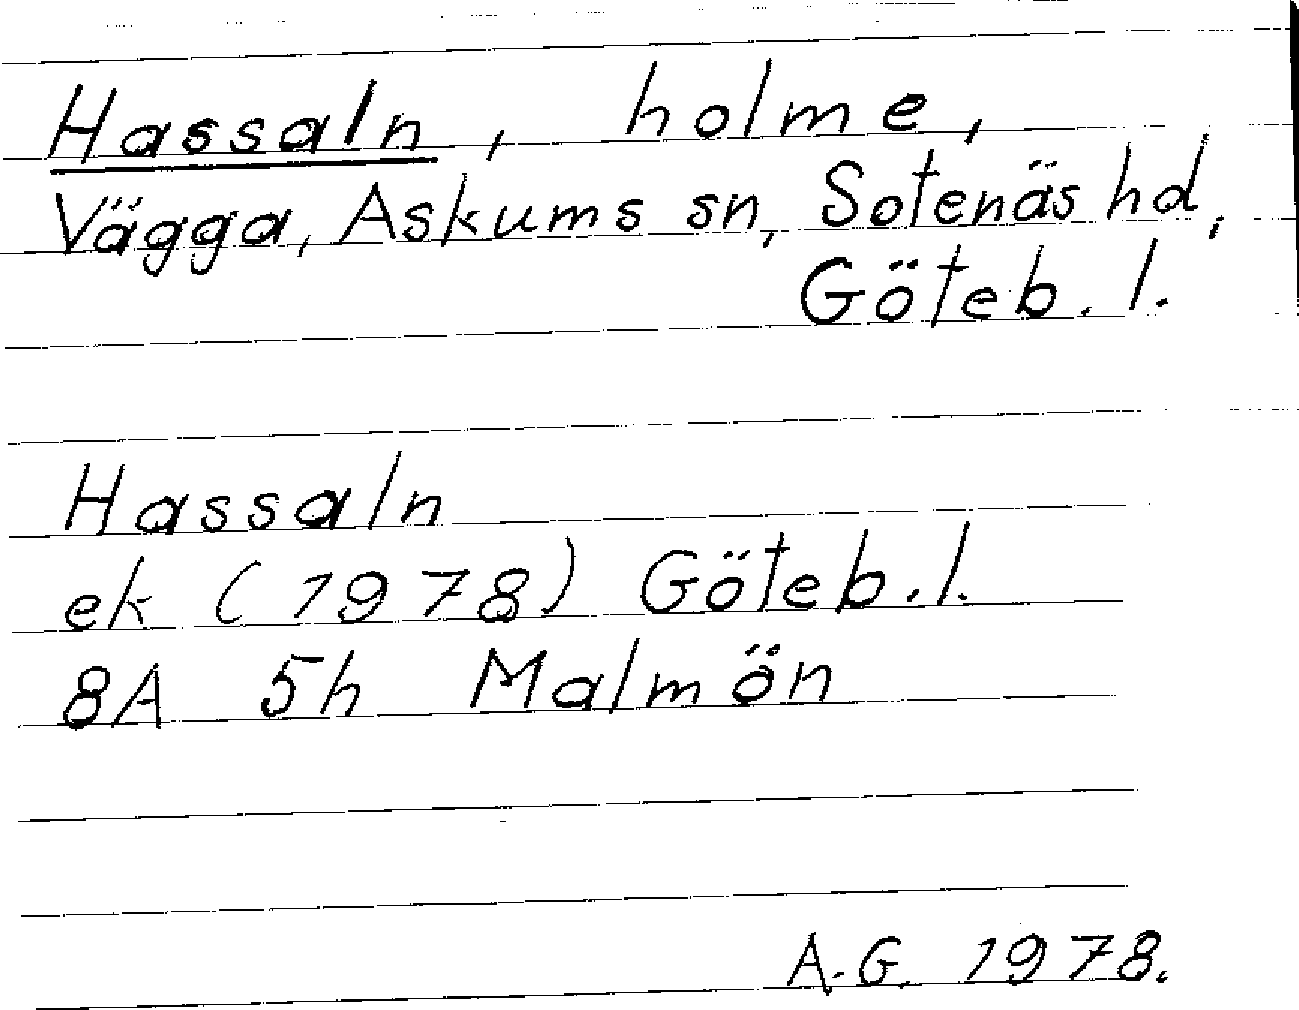 Hassaln, holme,
Vägga, Askums sn, Sotenäs hd,
Göteb. l.
Hassaln
ek (1978) Göteb. l.
8A 5h Malmön
A.G. 1978.